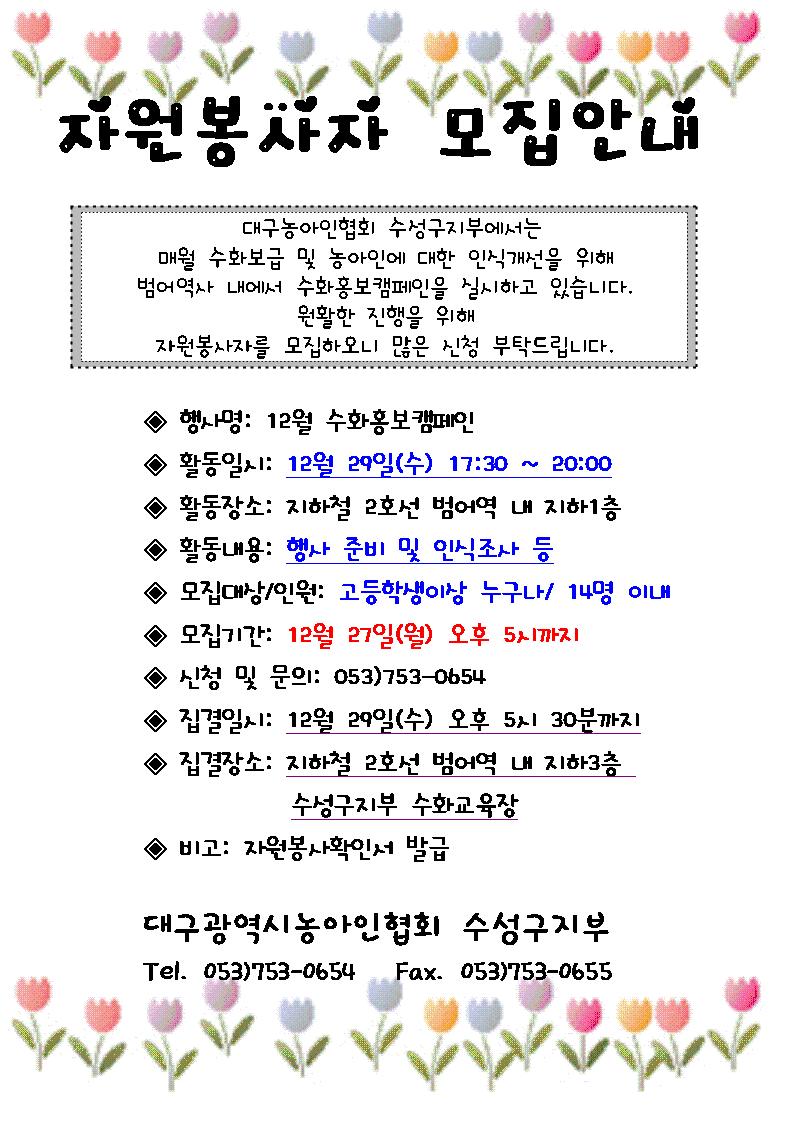 자원봉사자 모집안내
대구농아인협회 수성구지부에서는
매월 수화보급 및 농아인에 대한 인식개선을 위해
범어역사 내에서 수화홍보캠페인을 실시하고 있습니다.
원활한 진행을 위해
자원봉사자를 모집하오니 많은 신청 부탁드립니다.
◈ 행사명: 12월 수화홍보캠페인
◈ 활동일시: 12월 29일(수) 17:30 ~ 20:00
◈ 활동장소: 지하철 2호선 범어역 내 지하1층
◈ 활동내용: 행사 준비 및 인식조사 등
◈ 모집대상/인원: 고등학생이상 누구나/ 14명 이내
◈ 모집기간: 12월 27일(월) 오후 5시까지
◈ 신청 및 문의: 053)753-0654
◈ 집결일시: 12월 29일(수) 오후 5시 30분까지
◈ 집결장소: 지하철 2호선 범어역 내 지하3층
수성구지부 수화교육장
◈ 비고: 자원봉사확인서 발급
대구광역시농아인협회 수성구지부
Tel. 053)753-0654 Fax. 053)753-0655